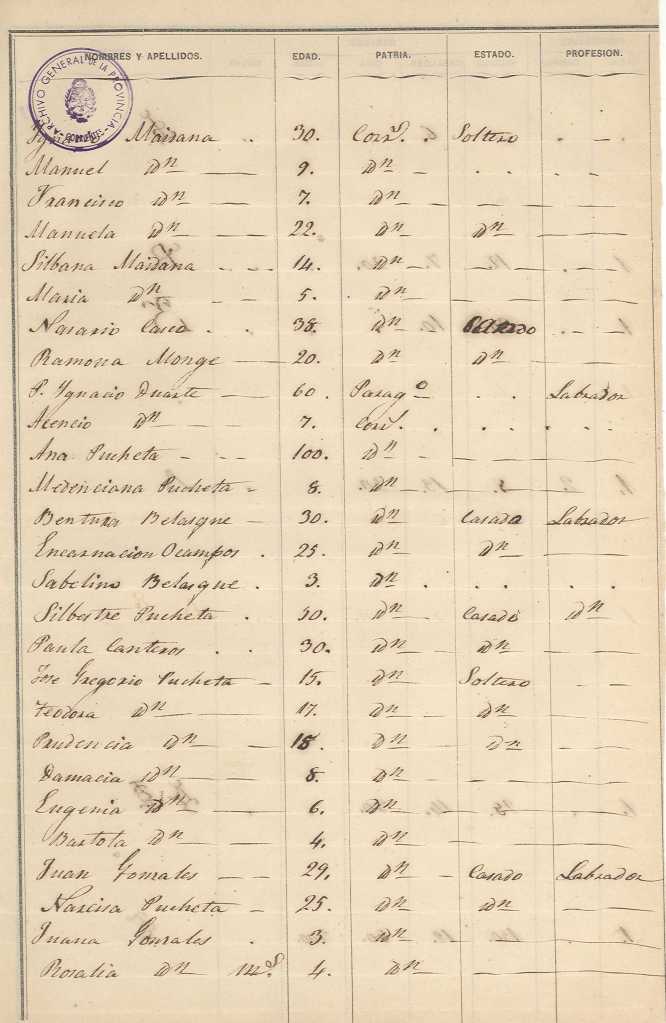 NOMBRES Y APELLIDOS. EDAD. PATRIA. ESTADO. PROFESION.
ARCHIVO GENERAL DE LA PROVINCIA
Maidana . 30. Corrs. . Soltero . - .
Manuel Dn — 9. Dn - . . . .
Francisco Dn — 7. Dn — — — —
Manuela Dn — 22. Dn — Dn — —
Silbana Maidana - - - 14. Dn - — — —
Maria Dn — 5. Dn — — —
Nasario Casco . . 38. Dn - Casado . - -
Ramona Monge — 20. Dn Dn — —
P. Ygnacio Duarte — 60. Parago - . . Labrador
Acencio Dn - — 7. Corrs. . . . . . .
Ana Pucheta - - - 100. Dn — — —
Medenciana Pucheta - 8. Dn — — —
Bentura Belasque — 30. Dn Casado Labrador
Encarnacion Ocampos . 25. Dn Dn — —
Sabelino Belasque . 3. Dn . . . .
Silbestre Pucheta . 30. Dn - Casado Dn
Paula Canteros . . 30. Dn — Dn — —
Jose Gregorio Pucheta — 15. Dn Soltero — —
Teodora Dn — 17. Dn - Dn — —
Prudencia Dn — — 15. Dn — Dn — —
Damacia Dn — — 8. Dn - — — —
Eugenia Dn — — 6. Dn — — —
Bartola Dn — 4. Dn — — —
Juan Gonzales — — 29. Dn - Casado Labrador
Narcisa Pucheta — 25. Dn Dn — —
Juana Gonzales . 3. Dn — — —
Rosalia Dn 4. Dn — —